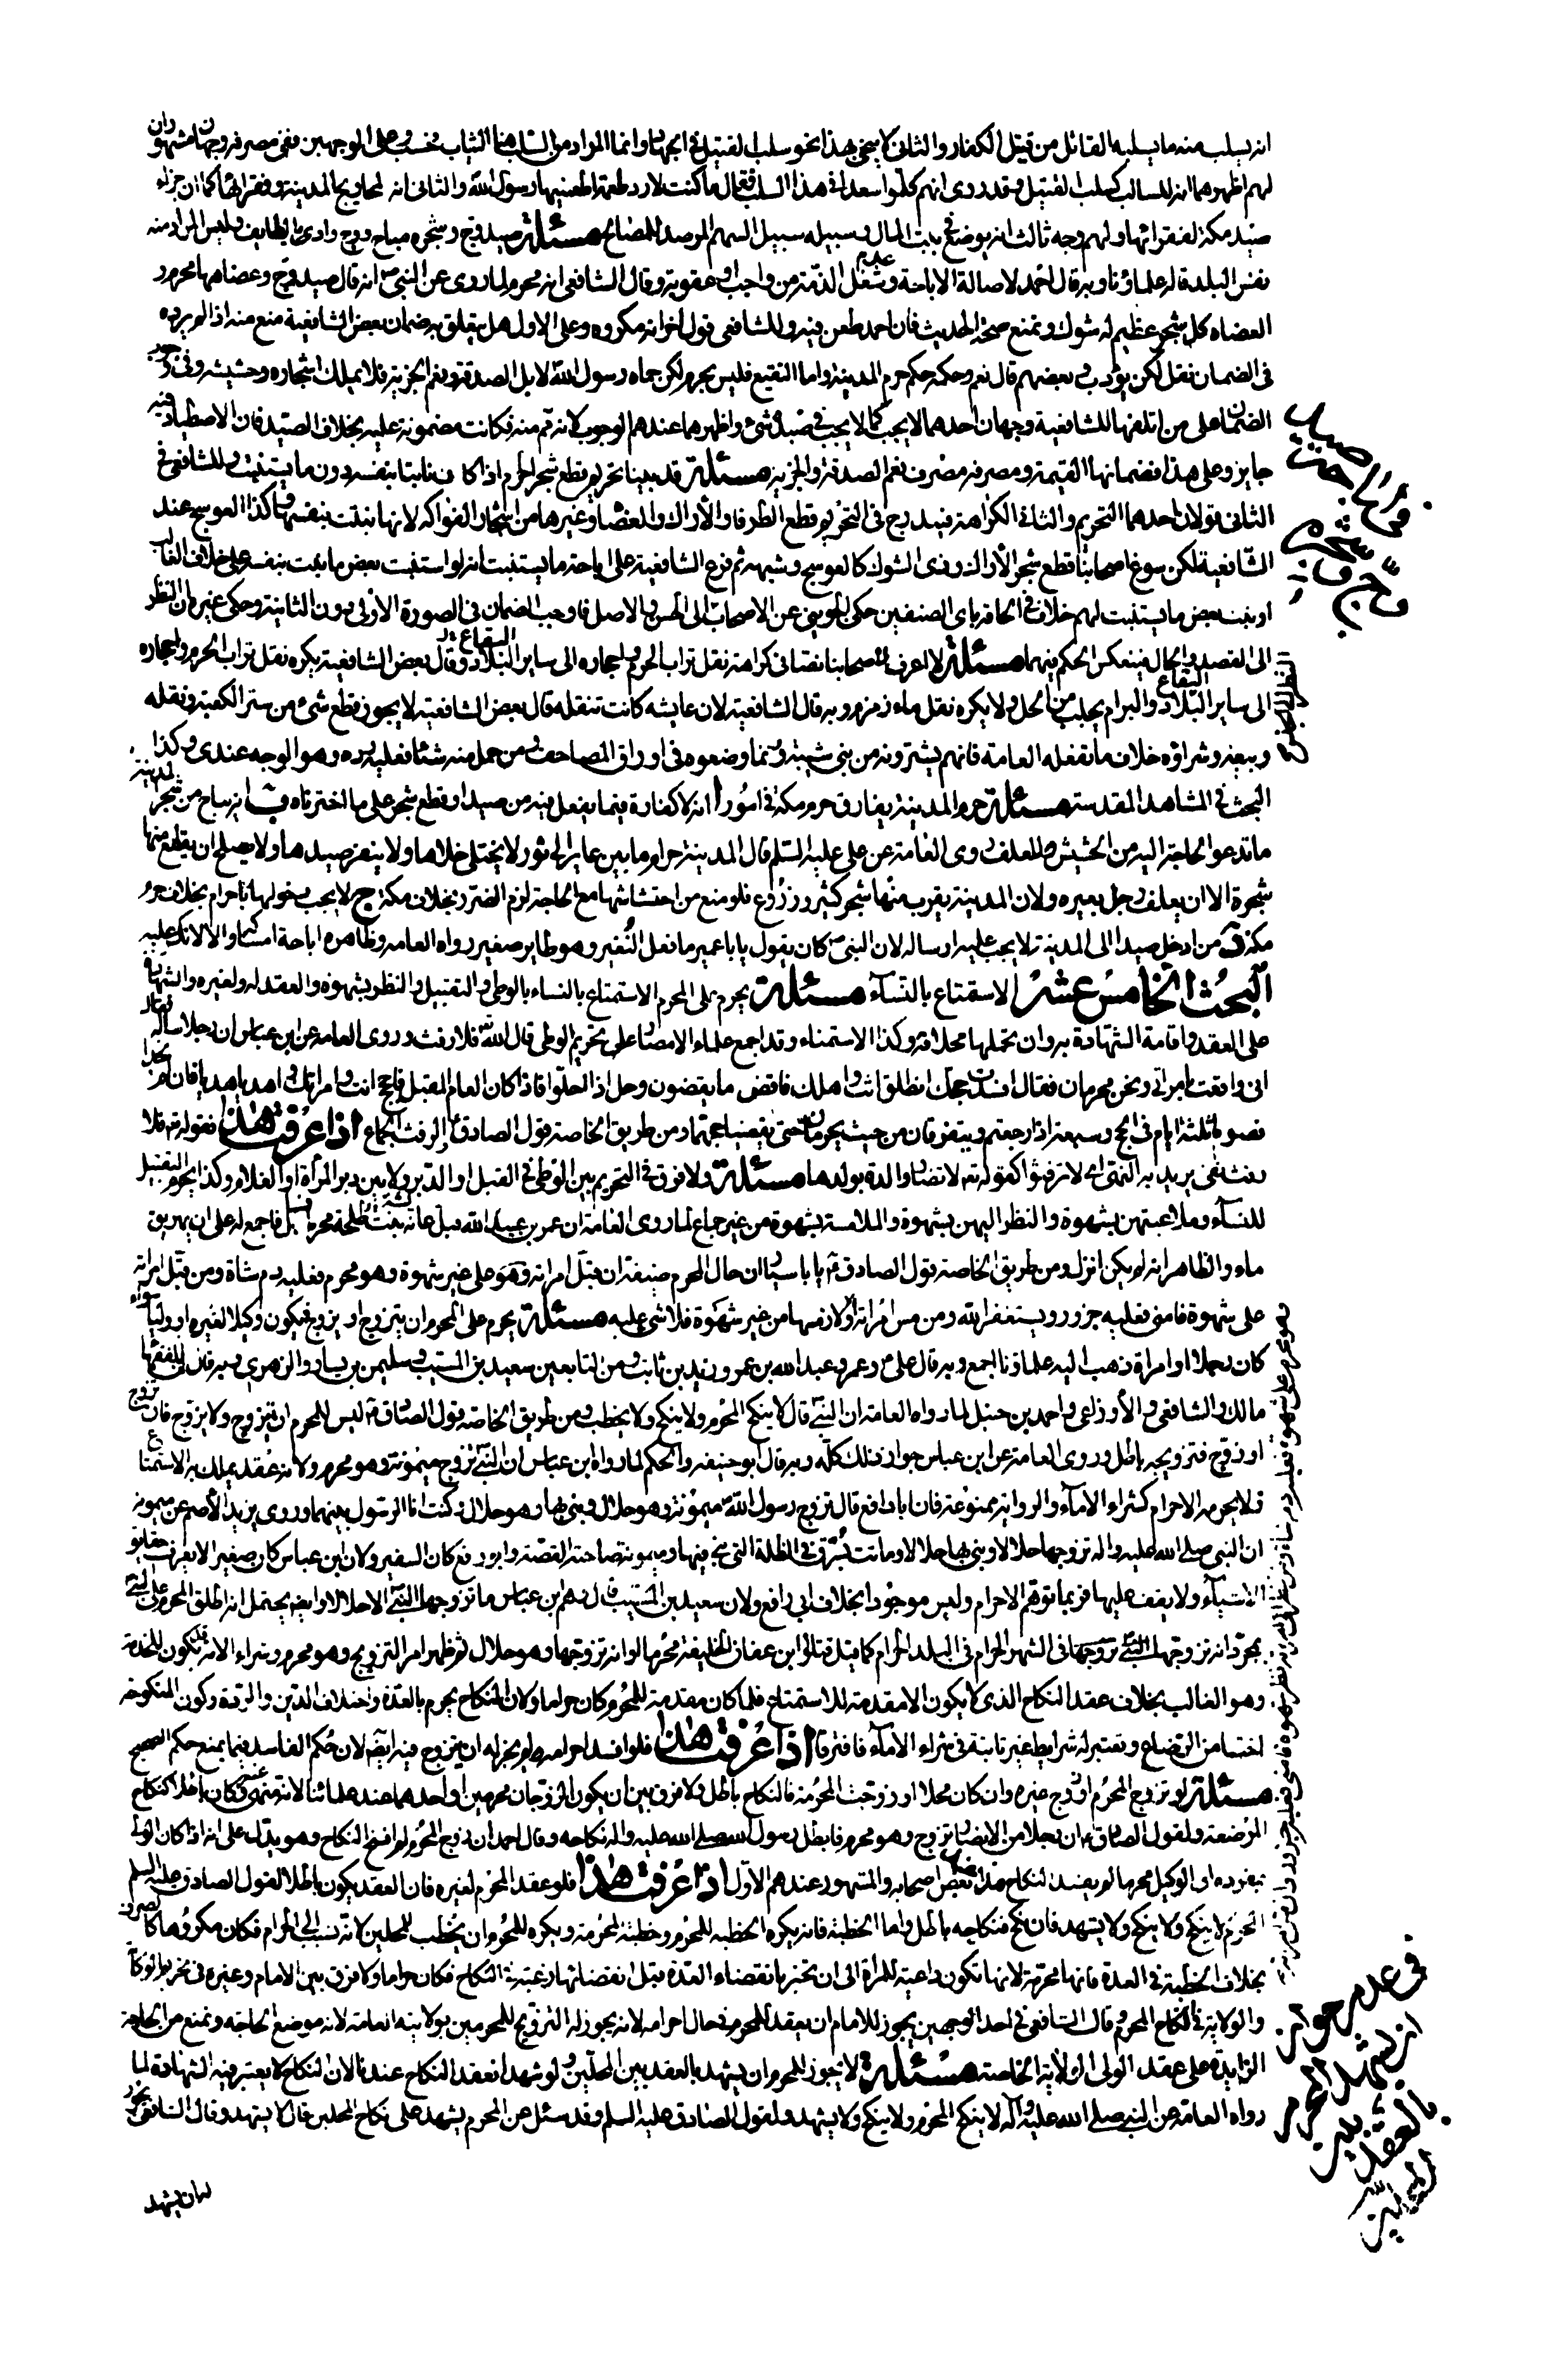 انه يسلب منه ما يسلبه القاتل من قتيل الكفار والثانى لا ينحى هذا نحو سلب القتيل فى الجهاد وانما المراد من السلب هنا الثياب فحسب وعلى الوجهين ففى مصرفه وجهان مشهوران
لهم اظهرهما انه للسالب كسلب القتيل وقد روى انهم كلموا سعدا فى هذا السلب فقال ما كنت لارد طعمة اطعمنيها رسول الله والثانى انه لمحاويج المدينة وفقرائها كما ان جزاء
صيد مكة لفقرائها ولهم وجه ثالث انه يوضع فى بيت المال وسبيله سبيل السهم المرصد للمصالح مسئلة صيد وج وشجره مباح ووج واد بالطايف وليس المراد منه
نفس البلد قاله علماؤنا وبه قال احمد لاصالة الاباحة وعدم شغل الذمة من واجب او عقوبة وقال الشافعى انه محرم لما روى عن النبى ص انه قال صيد وج وعضاهها محرم و
العضاه كل شجر عظيم له شوك ونمنع صحة الحديث فان احمد طعن فيه وللشافعى قول اخر انه مكروه وعلى الاول هل يتعلق به ضمان بعض الشافعية منع منه اذا لم يرد
فى الضمان نقل لكن يؤدب وبعضهم قال نعم وحكمه حكم حرم المدينة واما النقيع فليس بحرم لكن حماه رسول الله لابل الصدقة ونعم الجزية فلا يملك اشجاره وحشيشه وفى وجوب
الضمان على من اتلفها للشافعية وجهان احدهما لا يجب كما لا يجب فى صيده شىء واظهرهما عندهم الوجوب لانه تم منه فكانت مضمونة عليه بخلاف الصيد فان الاصطياد فيه
جايز وعلى هذا فضمانها القيمة ومصرفه مصرف نعم الصدقة والجزية مسئلة قد بينا تحريم قطع شجر الحرم اذا كان نابتا بنفسه دون ما يستنبت وللشافعى فى
الثانى قولان احدهما التحريم والثانى الكراهة فيندرج فى التحريم قطع الطرفا والاراك والعضاه وغيرها من اشجار الفواكه لانها نبتت بنفسها وكذا العوسج عند
الشافعية لكن سوغ اصحابنا قطع شجر الاراك وذى الشوك كالعوسج وشبهه ثم فرع الشافعية على اباحة ما يستنبت انه لو استنبت بعض ما ينبت بنفسه على خلاف الغالب
او نبت بعض ما يستنبت لهم خلاف فى الحاقه باى الصنفين حكى الجوينى عن الاصحاب النظر الى الجنس والاصل فاوجب الضمان فى الصورة الاولى دون الثانية وحكى غيره ان النظر
الى القصد والحال فينعكس الحكم فيهما مسئلة لا اعرف لاصحابنا نصا فى كراهة نقل تراب الحرم واحجاره الى ساير البقاع وقال بعض الشافعية يكره نقل تراب الحرم واحجاره
الى ساير البقاع والبرام يجلب من الحل ولا يكره نقل ماء زمزم وبه قال الشافعية لان عايشة كانت تنقله قال بعض الشافعية لا يجوز قطع شىء من ستر الكعبة ونقله
وبيعه وشراؤه خلاف ما تفعله العامة فانهم يشترونه من بنى شيبة وربما وضعوه فى اوراق المصاحف ومن حمل منه شيئا فعليه رده وهو الوجه عندى وكذا
البحث فى المشاهد المقدسة مسئلة حرم المدينة يفارق حرم مكة فى امور ا انه لا كفارة فيما يفعل فيه من صيد او قطع شجر على ما اخترناه ب انه يباح من شجر المدينة
ما تدعو الحاجة اليه من الحشيش للعلف روى العامة عن على عليه السلم قال المدينة حرام ما بين عاير الى ثور لا يختلى خلاها ولا ينفر صيدها ولا يصلح ان يقطع منها
شجرة الا ان يعلف رجل بعيره ولان المدينة يقرب منها شجر كثير وزروع فلو منع من احتشاشها مع الحاجة لزم الضرر بخلاف مكة ج لا يجب دخولها باحرام بخلاف حرم
مكة د من ادخل صيدا الى المدينة لا يجب عليه ارساله لان النبى ص كان يقول يا با عمير ما فعل النغير وهو طاير صغير رواه العامة وظاهره اباحة امساكه والا لانكر عليه
البحث الخامس عشر الاستمتاع بالنساء مسئلة يحرم على المحرم الاستمتاع بالنساء بالوطى والتقبيل والنظر بشهوة والعقد له ولغيره والشهادة
على العقد واقامة الشهادة به وان تحملها محلا وكذا الاستمناء وقد اجمع علماء الامصار على تحريم الوطى قال الله تعالى فلا رفث وروى العامة عن ابن عباس ان رجلا سأله فقال
انى واقعت بامراتى ونحن محرمان فقال افسدت حجك انطلق انت واهلك فاقض ما يقضون وحل اذا احلوا فاذا كان العام المقبل فاحجج انت وامراتك واهديا هديا فان لم تجدا
فصوما ثلثة ايام فى الحج وسبعة اذا رجعتم ويتفرقان من حيث يحرمان حتى يقضيا حجهما ومن طريق الخاصة قول الصادق ع الرفث الجماع اذا عرفت هذا فقوله تع فلا
رفث نفى يريد به النهى اى لا ترفثوا كقوله تع لا تضار والدة بولدها مسئلة ولا فرق فى التحريم بين الوطى فى القبل او الدبر ولا بين دبر المرأة او الغلام وكذا يحرم التقبيل
للنساء وملاعبتهن بشهوة والنظر اليهن بشهوة والملامسة بشهوة من غير جماع لما روى العامة ان عمر بن عبيد الله قبل عايشة بنت طلحة محرما فسأل فاجمع له على ان يهريق
ماء والظاهر انه لم يكن انزل ومن طريق الخاصة قول الصادق ع يا با سيار ان حال المحرم ضيقة ان قبل امراته وهو على غير شهوة وهو محرم فعليه دم شاة ومن قبل امراته
على شهوة فامنى فعليه جزور ويستغفر الله ومن مس امراته او لازمها من غير شهوة فلا شىء عليه مسئلة يحرم على المحرم ان يتزوج او يزوج فيكون وكيلا لغيره او وليا سواء
كان رجلا او امراة ذهب اليه علماؤنا اجمع وبه قال على ع وعمر وعبد الله بن عمر وزيد بن ثابت ومن التابعين سعيد بن المسيب وسليمن بن يسار والزهرى وبه قال من الفقهاء
مالك والشافعى والاوزاعى واحمد بن حنبل لما رواه العامة ان النبى ص قال لا ينكح المحرم ولا ينكح ولا يخطب ومن طريق الخاصة قول الصادق ع ليس للمحرم ان يتزوج ولا يزوج فان تزوج
او زوج فتزويجه باطل وروى العامة عن ابن عباس جواز ذلك كله وبه قال ابو حنيفة والحكم لما رواه ابن عباس ان النبى ص تزوج ميمونة وهو محرم ولانه عقد يملك به الاستمتاع
فلا يحرمه الاحرام كشراء الاماء والرواية ممنوعة فان ابا رافع قال تزوج رسول الله ص ميمونة وهو حلال وبنى بها وهو حلال وكنت انا الرسول بينهما وروى يزيد الاصم عن ميمونة
ان النبى صلى الله عليه واله تزوجها حلالا وبنى بها حلالا وماتت بسرف فى الظلة التى بنى فيها وميمونة صاحبة القصة وابو رافع كان السفير ولان ابن عباس كان صغيرا لا يعرف حقايق
الاشياء ولا يقف عليها فربما توهم الاحرام وليس موجودا بخلاف ابى رافع ولان سعيد بن المسيب قال وهم ابن عباس ما تزوجها النبى ص الا حلالا وايضا يحتمل انه اطلق المحرم على النبى ص
بمجرد انه تزوجها النبى ص تزوجها فى الشهر الحرام فى البلد الحرام كما قيل قتلوا ابن عفان الخليفة محرما او انه تزوجها وهو حلال ثم ظهر امر التزويج وهو محرم وشراء الامة قد يكون للخدمة
وهو الغالب بخلاف عقد النكاح الذى لا يكون الا مقدمة للاستمتاع فلما كان مقدمة للمحرم كان حراما ولان النكاح يحرم بالعدة واختلاف الدين والردة وكون المنكوحة
اختا من الرضاع ويعتبر له شرايط غير ثابتة فى شراء الاماء فافترقا اذا عرفت هذا فلو افسد احرامه لم يجز له ان يتزوج فيه ايضا لان حكم الفاسد فيما يمنع حكم الصحيح
مسئلة لو تزوج المحرم او زوج غيره وان كان محلا او زوجت المحرمة فالنكاح باطل ولا فرق بين ان يكون الزوجان محرمين او احدهما عند علمائنا لانه منهى عنه وكان باطلا كنكاح
المرضعة ولقول الصادق ع ان رجلا من الانصار تزوج وهو محرم فابطل رسول الله صلى الله عليه واله نكاحه وقال احمد ان زوج المحرم لم افسخ النكاح وهو يدل على انه اذا كان الولى
بمفرده او الوكيل محرما لم يفسد النكاح هذا عند بعض اصحابه والمشهور عندهم الاول اذا عرفت هذا فلو عقد المحرم لغيره فان العقد يكون باطلا لقول الصادق عليه السلم
المحرم لا ينكح ولا ينكح ولا يشهد فان نكح فنكاحه باطل واما الخطبة فانه يكره الخطبة للمحرم وخطبة المحرمة ويكره للمحرم ان يخطب للمحلين لانه تسبب الى الحرام فكان مكروها كالصرف
بخلاف الخطبة فى العدة فانها محرمة لانها تكون داعية للمراة الى ان تخبر بانقضاء العدة قبل انقضائها رغبة فى النكاح فكان حراما ولا فرق بين الامام وغيره فى تحريم الوكالة
والولاية فى النكاح المحرم وقال الشافعى فى احد الوجهين يجوز للامام ان يعقد للمحرم فى حال احرامه لانه يجوز له التزويج للمحرمين بولايته العامة لانه موضع الحاجة ونمنع من الحاجة
الزايدة على عقد الولى الولاية الخاصة مسئلة لا يجوز للمحرم ان يشهد بالعقد بين المحلين ولو شهد انعقد النكاح عندنا لان النكاح لا يعتبر فيه الشهادة لما
رواه العامة عن النبى صلى الله عليه وآله لا ينكح المحرم ولا ينكح ولا يشهد ولقول الصادق عليه السلم وقد سئل عن المحرم يشهد على نكاح المحلين قال لا يشهد وقال الشافعى يجوز
له ان يشهد
فى عدم جواز
ان يشهد المحرم
بالعقد بين
المحلين